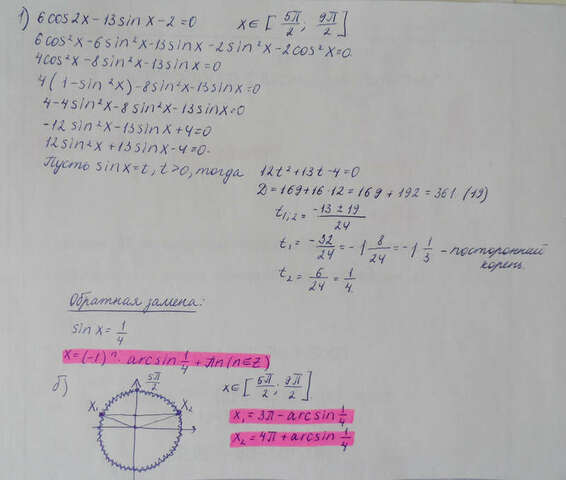 1) 6cos2x-13sin x-2=0 x∈[5π/2; 9π/2]
6cos²x-6sin²x-13sinx-2sin²x-2cos²x=0.
4cos²x-8sin²x-13sinx=0
4(1-sin²x)-8sin²x-13sinx=0
4-4sin²x-8sin²x-13sinx=0
-12sin²x-13sinx+4=0
12sin²x+13sinx-4=0.
Пусть sinx=t, t>0, тогда 12t²+13t-4=0
D=169+16·12=169+192=361 (19)
t₁,₂=(-13±19)/24
t₁=-32/24=-1 8/24=-1 1/3 - посторонний корень.
t₂=6/24=1/4.
Обратная замена:
sin x=1/4
x=(-1)ⁿ·arcsin 1/4+πn(n∈Z)
б) 5π/2 x∈[5π/2; 9π/2]
x₁ x₂
x₁=3π-arcsin 1/4
x₂=4π+arcsin 1/4